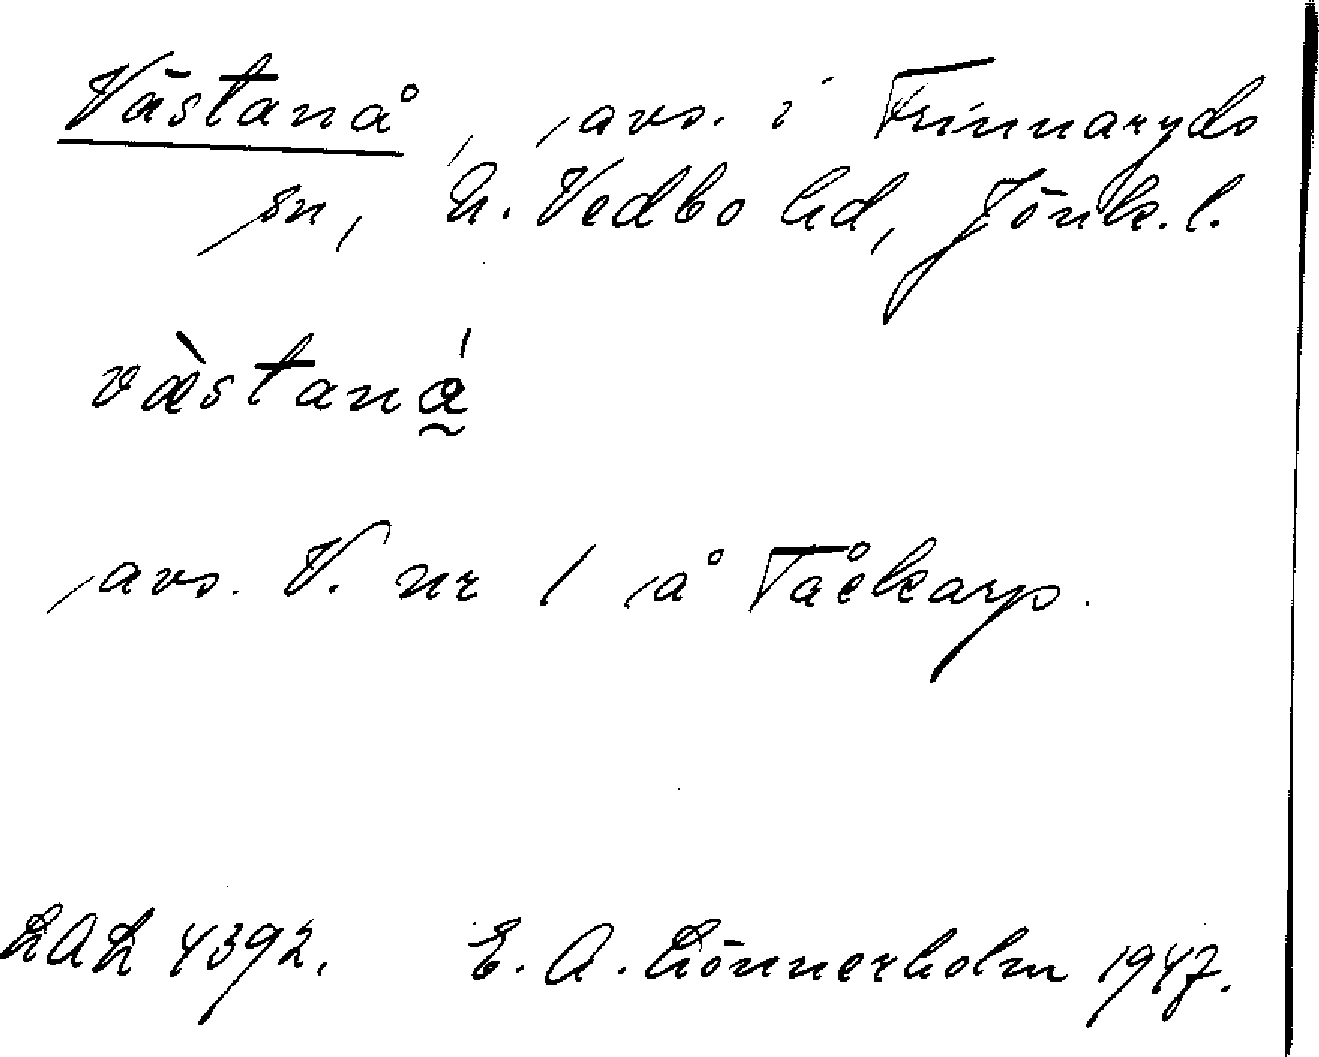 Västanå, avs. i Frinnaryds
sn, N. Vedbo hd, Jönk. l.
væ̀staná̰
avs. V. nr 1 å Tåckarp.
LAL 4392. E. A. Lönnerholm 1947.